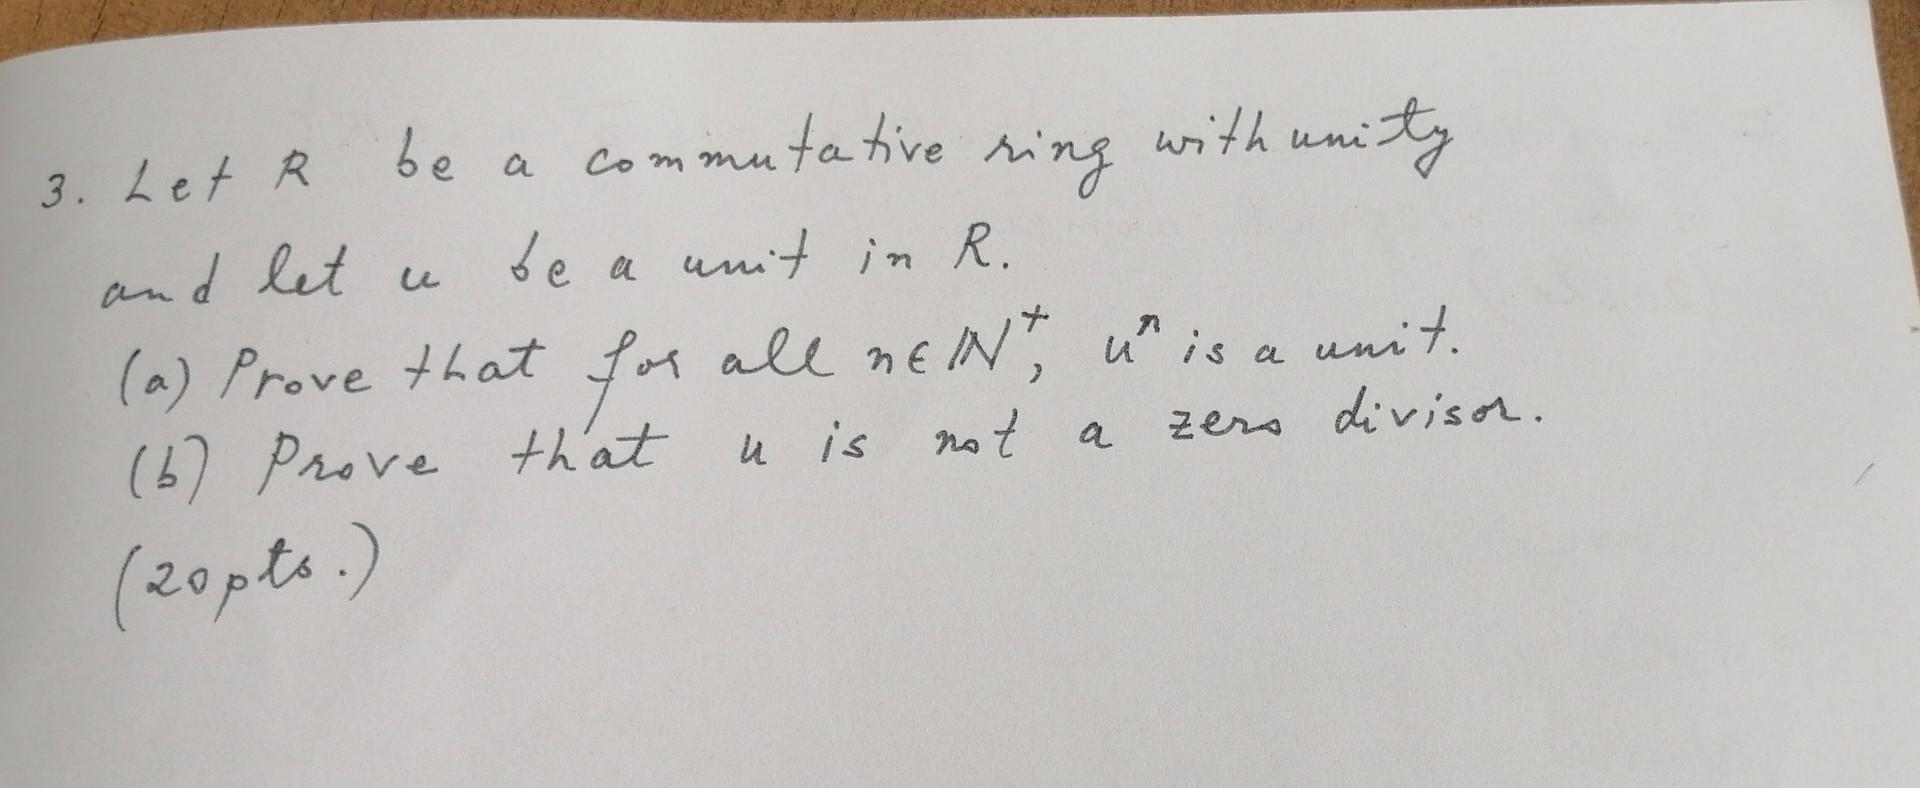 3. Let R be a commutative ring with unity
and let u be a unit in R.
(a) Prove that for all n∈ℕ⁺, uⁿ is a unit.
(b) Prove that u is not a zero divisor.
(20pts.)